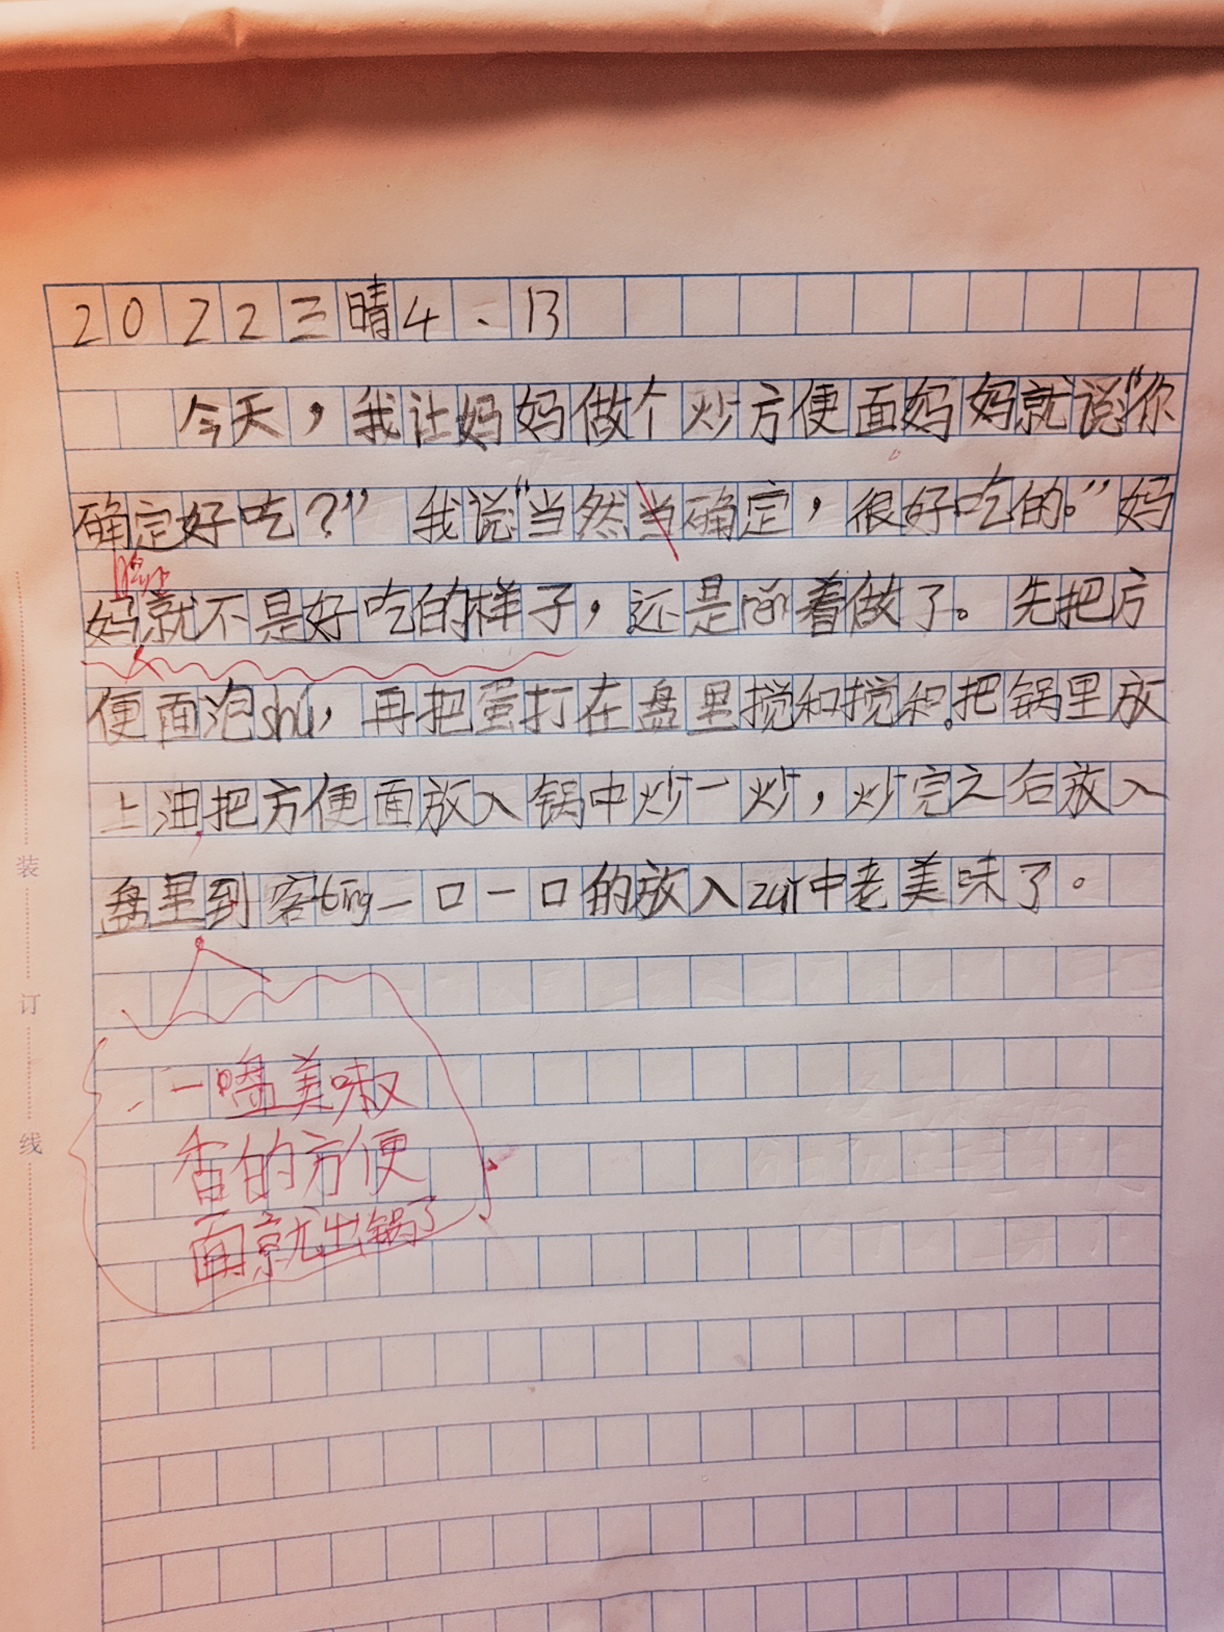 2022三晴4、13
今天，我让妈妈做个炒方便面妈妈就说“你
确定好吃？”我说“当然当确定，很好吃的。”妈
妈就不是好吃的样子，还是nài着做了。先把方
便面泡shú，再把蛋打在盘里搅和搅和。把锅里放
上油把方便面放入锅中炒一炒，炒完之后放入
盘里到客tīng一口一口的放入zuǐ中老美味了。
一盘美味又
香的方便
面就出锅了
装
订
线